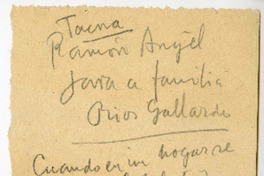 Tacna
Ramón Angel
Jara a familia
Rios Gallardo
Cuando en un hogar se